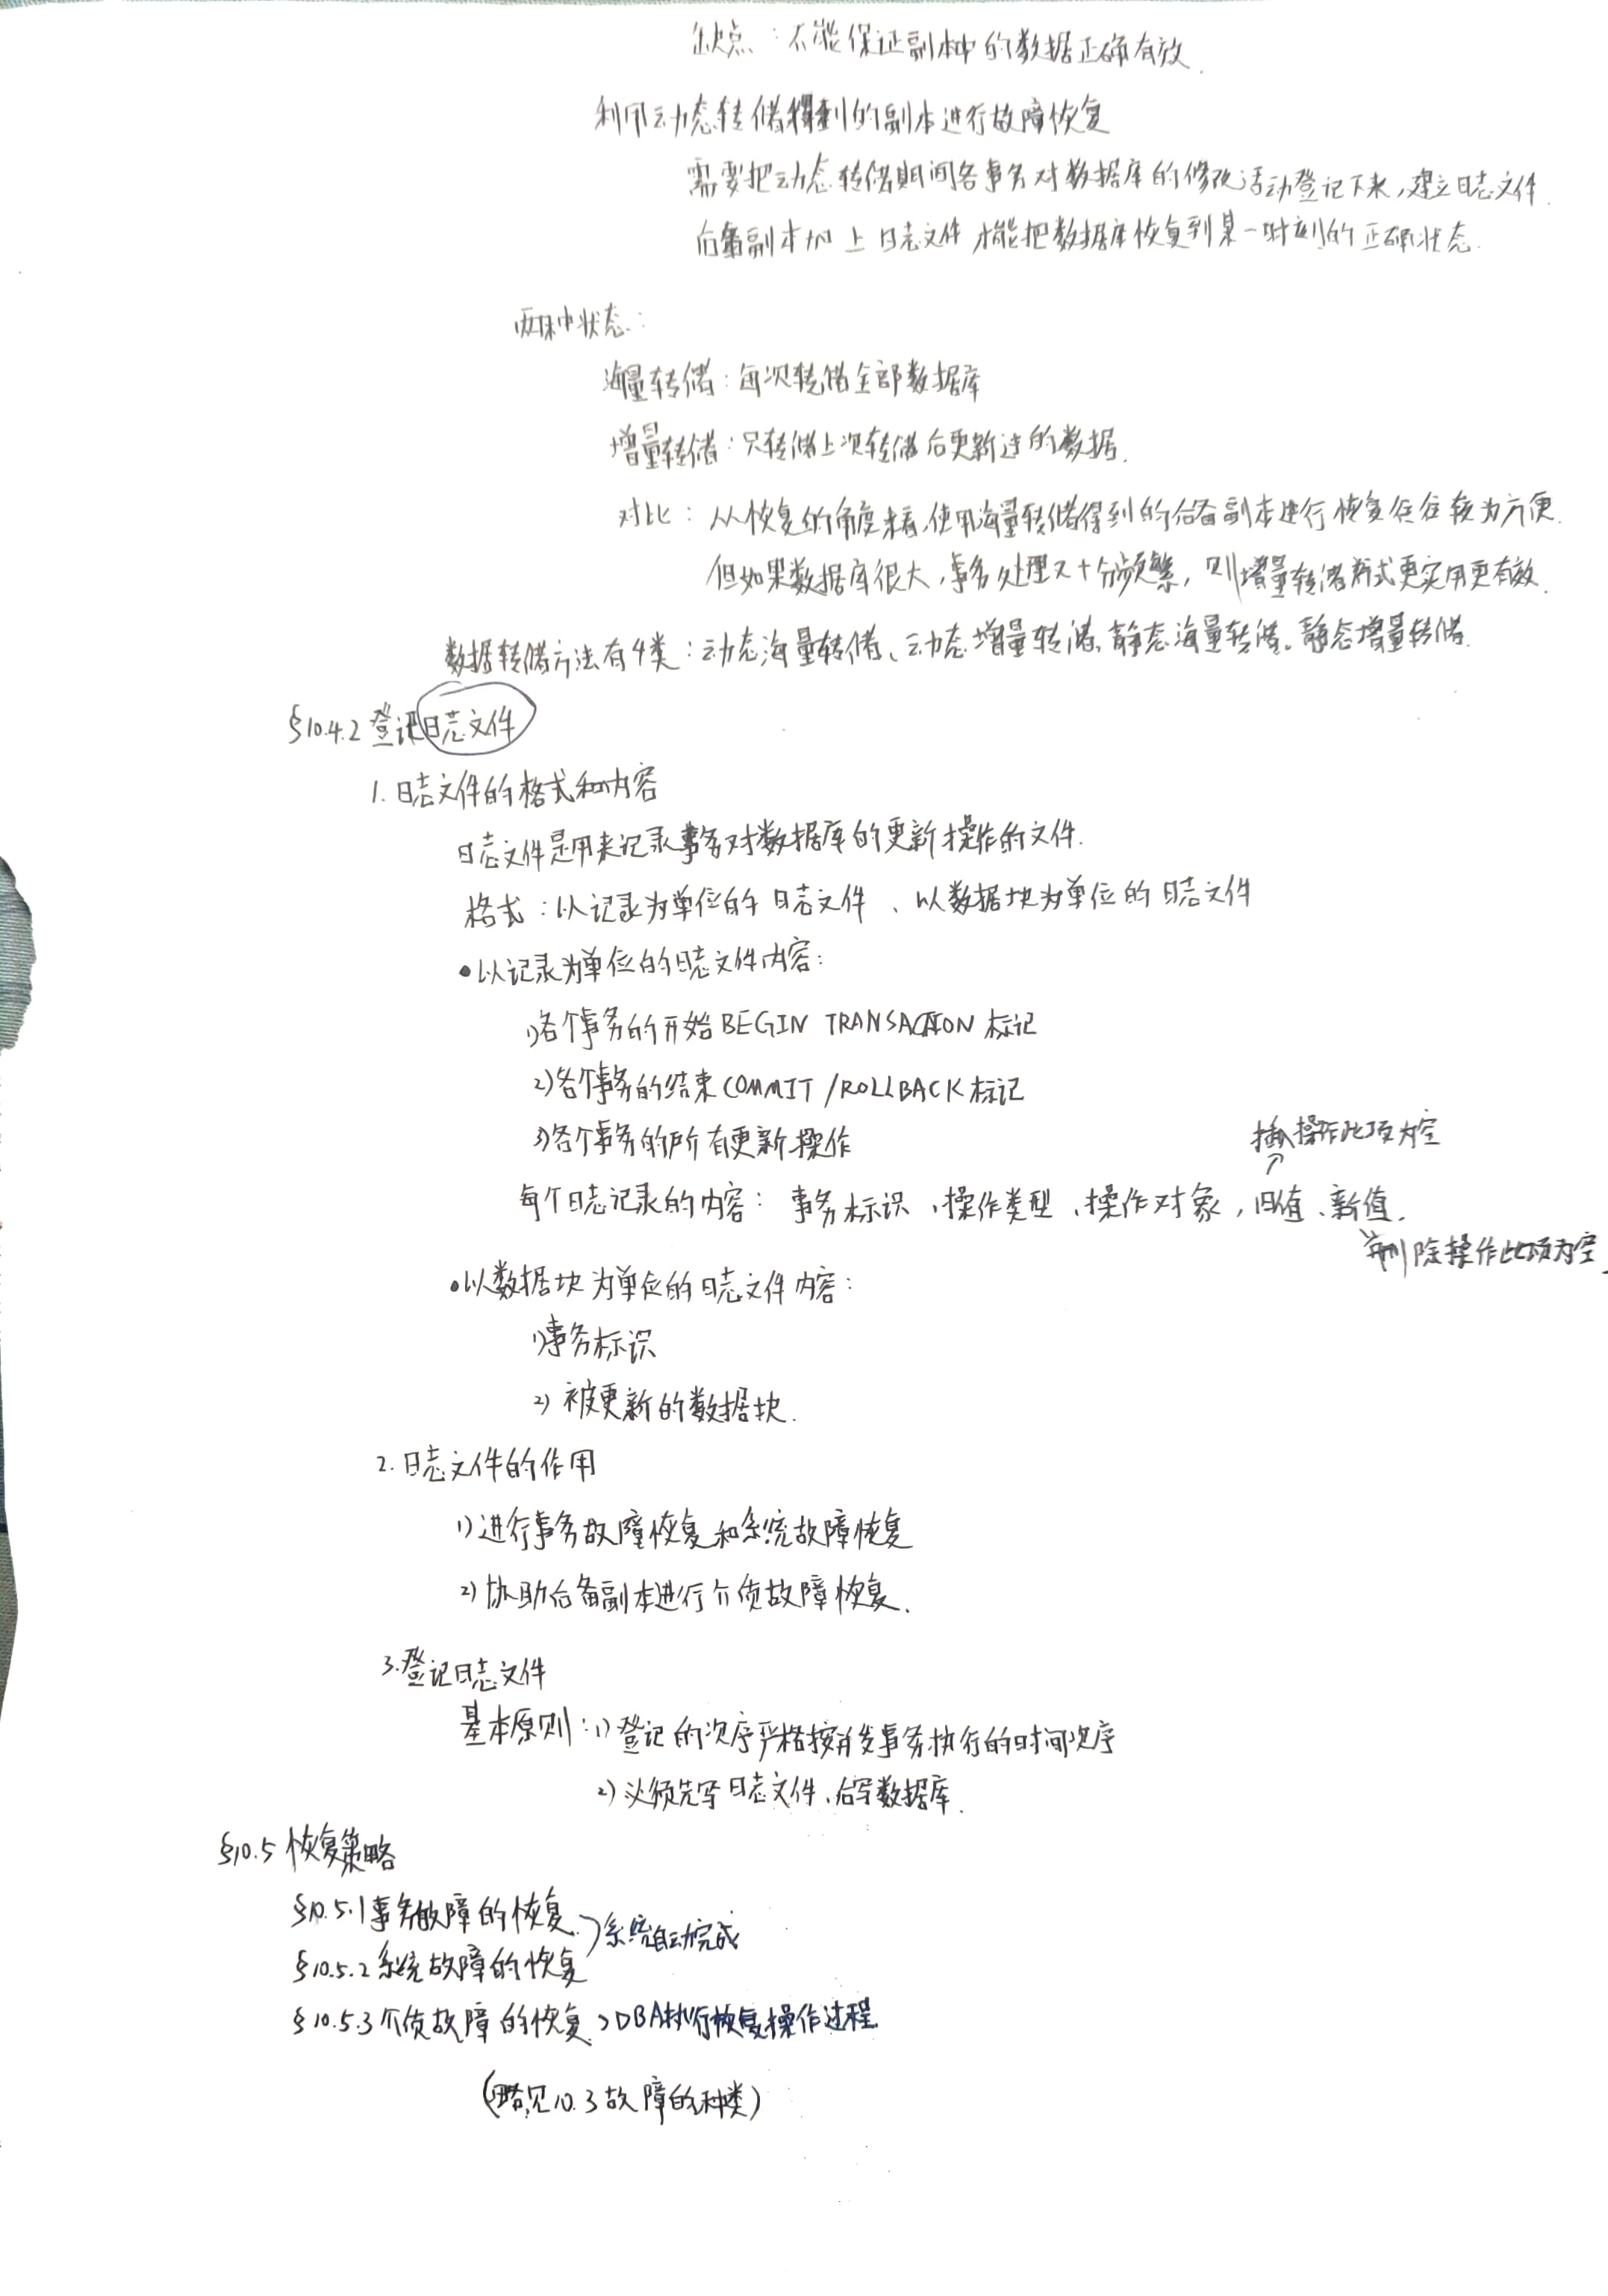 缺点：不能保证副本中的数据正确有效.
利用动态转储得到的副本进行故障恢复
需要把动态转储期间各事务对数据库的修改活动登记下来，建立日志文件.
后备副本加上日志文件才能把数据库恢复到某一时刻的正确状态.
两种状态：
海量转储：每次转储全部数据库
增量转储：只转储上次转储后更新过的数据.
对比：从恢复的角度来看，使用海量转储得到的后备副本进行恢复往往较为方便.
但如果数据库很大，事务处理又十分频繁，则增量转储方式更实用更有效.
数据转储方法有4类：动态海量转储、动态增量转储、静态海量转储。静态增量转储.
§10.4.2 登记日志文件
1. 日志文件的格式和内容
日志文件是用来记录事务对数据库的更新操作的文件.
格式：以记录为单位的日志文件、以数据块为单位的日志文件
•以记录为单位的日志文件内容：
1)各个事务的开始BEGIN TRANSACTION 标记
2)各个事务的结束COMMIT/ROLLBACK标记
3)各个事务的所有更新操作
插入操作此项为空
每个日志记录的内容：事务标识、操作类型、操作对象，旧值、新值.
删除操作此项为空
•以数据块为单位的日志文件内容：
1)事务标识
2) 被更新的数据块.
2. 日志文件的作用
1) 进行事务故障恢复和系统故障恢复
2) 协助后备副本进行介质故障恢复.
3.登记日志文件
基本原则：1) 登记的次序严格按并发事务执行的时间次序
2) 必须先写日志文件，后写数据库.
§10.5 恢复策略
§10.5.1事务故障的恢复
系统自动完成
§10.5.2 系统故障的恢复
§10.5.3 介质故障的恢复 > DBA执行恢复操作过程.
(略，见10.3故障的种类)